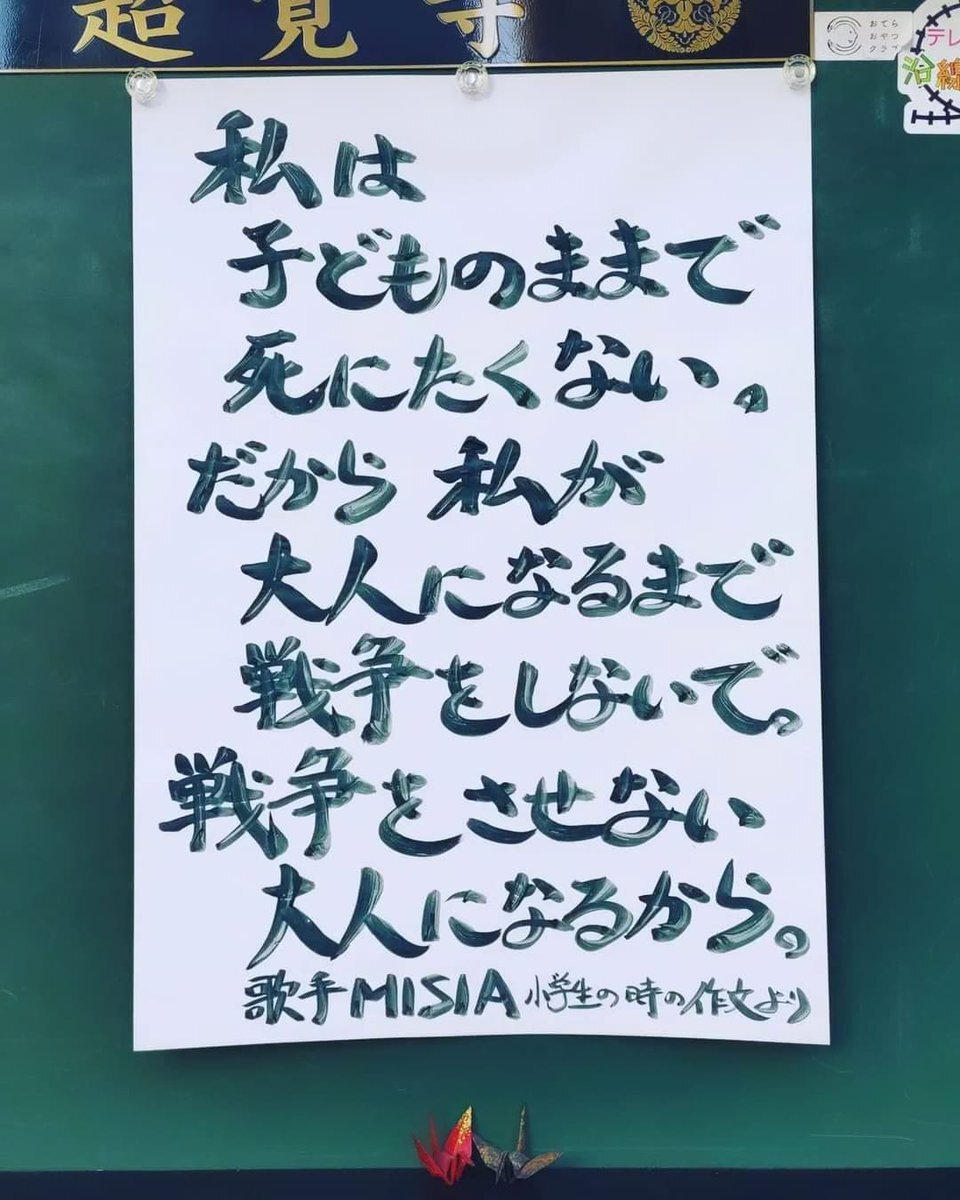 超覚寺
おてら
おやつ
クラブ
テレ
沿線
私は
子どものままで
死にたくない。
だから 私が
大人になるまで
戦争をしないで。
戦争をさせない
大人になるから。
歌手MISIA 小学生の時の作文より